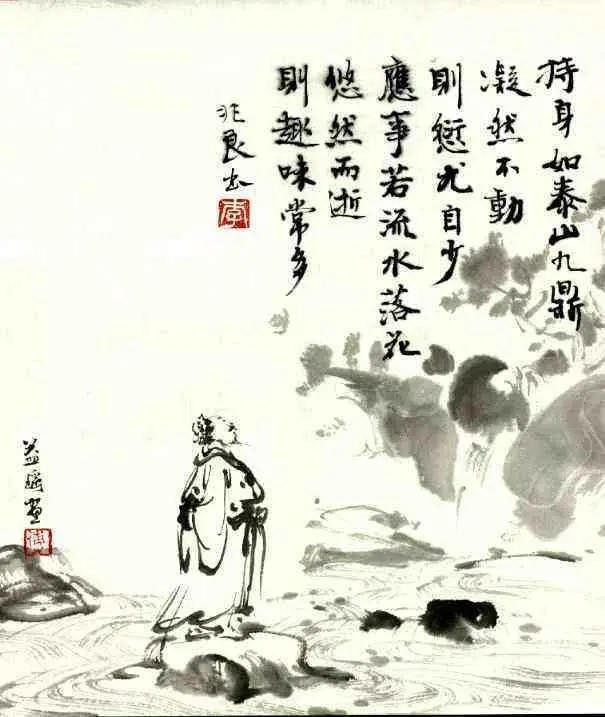 持身如泰山九鼎
凝然不動
則愆尤自少
應事若流水落花
悠然而逝
則趣味常多
兆良書
李
益瑤畫